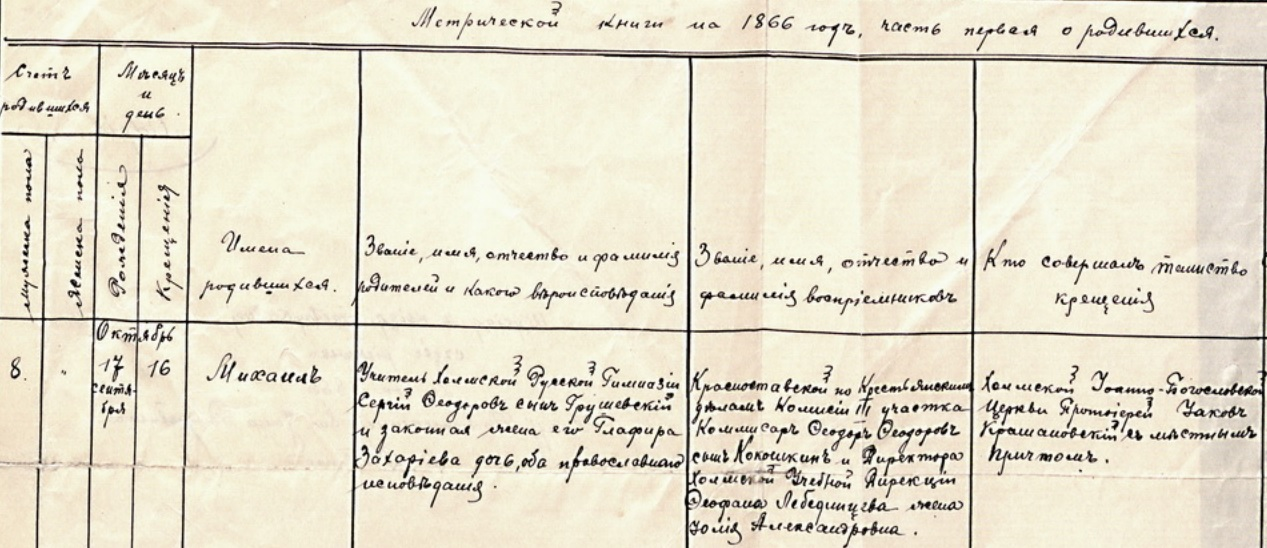 Метрической книги на 1866 годъ, часть первая о родившихся.
Счетъ
родившихся
Мѣсяцъ
и
день.
мужеска пола
женска пола
Рожденія
Крещенія
Имена
родившихся.
Званіе, имя, отчество и фамилія
родителей и какого вѣроисповѣданія
Званіе, имя, отчество и
фамилія воспріемниковъ
Кто совершалъ таинство
крещенія
Октябрь
8.
"
17
сентя-
бря
16
Михаилъ
Учитель Холмской Русской Гимназіи
Сергій Ѳеодоровъ сынъ Грушевскій
и законная жена его Глафира
Захаріева дочь, оба православнаго
исповѣданія.
Красноставской по Крестьянскимъ
дѣламъ Комисіи III участка
Коммисаръ Ѳеодоръ Ѳеодоровъ
сынъ Кокошкинъ и Директора
Холмской Учебной Дирекціи
Ѳеофана Лебединцева жена
Юлія Александровна.
Холмской Іоанно-Богословской
Церкви Протоіерей Іаковъ
Крашановскій съ мѣстнымъ
причтомъ.